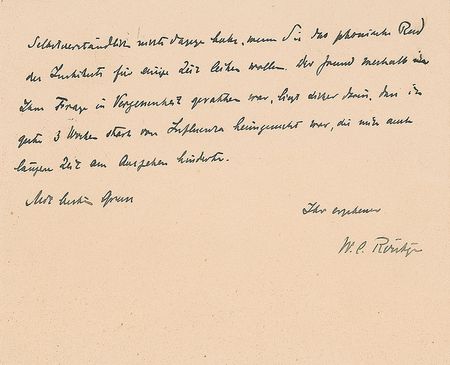 Selbstverständlich nichts dagegen habe, wenn Sie das phonische Rad
des Instituts für einige Zeit leihen wollen. Der Grund weshalb
Ihre Frage in Vergessenheit gerathen war, liegt darin, dass ich
3 Wochen stark von Influenza heimgesucht war, die mich auch
längere Zeit am Ausgehen hinderte.
Mit besten Gruss
Ihr ergebener
W. C. Röntgen